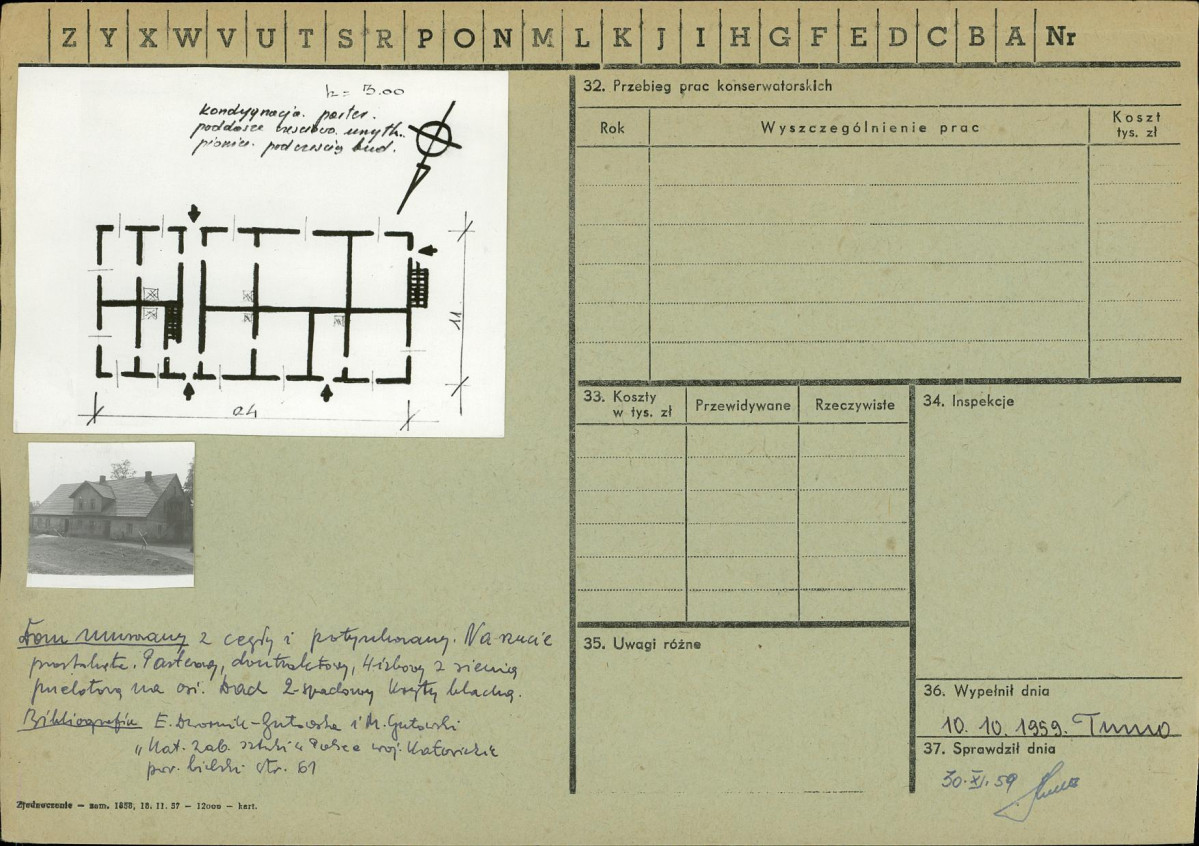 Z Y X W V U T S R P O N M L K J I H G F E D C B A Nr
h = 3.00
kondygnacja. parter.
poddasze częściowo użytk.
piwnice. pod częścią bud.
11
24
Dom murowany z cegły i potynkowany. Na rzucie
prostokąta. Parterowy, dwutraktowy, 4-izbowy z sienią
przelotową na osi. Dach 2-spadowy kryty blachą.
Bibliografia E. Dwornik-Gutowska i M. Gutowski
"Kat. zab. sztuki w Polsce woj. Katowickie
pow. bielski str. 61
Zjednoczenie – zam. 1858, 18. 11. 57 – 12000 – kart.
32. Przebieg prac konserwatorskich
Rok
Wyszczególnienie prac
Koszt
tys. zł
33. Koszty
w tys. zł
Przewidywane
Rzeczywiste
34. Inspekcje
35. Uwagi różne
36. Wypełnił dnia
10. 10. 1959.
37. Sprawdził dnia
30.XI.59